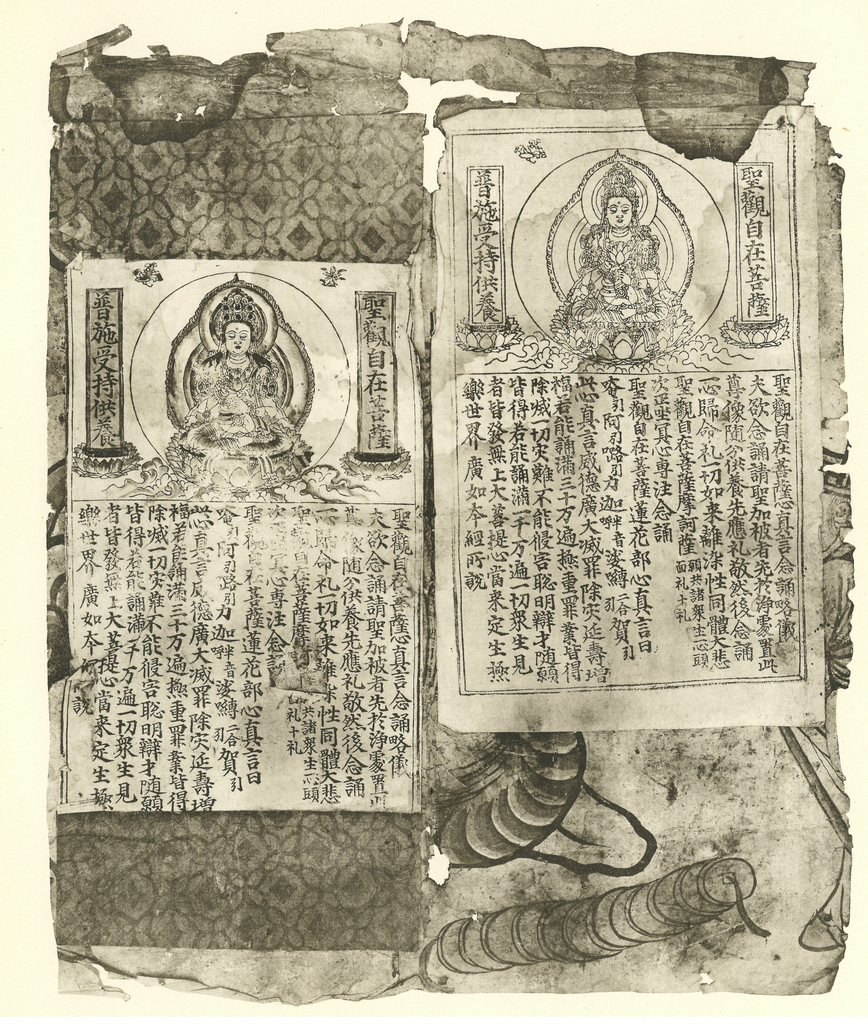 聖觀自在菩薩
普施受持供養
聖觀自在菩薩心真言念誦略儀
夫欲念誦請聖加被者先於淨處置此
尊像隨分供養先應礼敬然後念誦
心歸命礼一切如来離染性同體大悲
聖觀自在菩薩摩訶薩願共諸衆生心頭
面礼十礼
次正坐冥心專注念誦
聖觀自在菩薩蓮花部心真言曰
唵引阿引路引力迦呼音娑嚩二合賀引
此心真言威德廣大滅罪除灾延壽增
福若能誦滿三十万遍極重罪業皆得
除滅一切灾難不能侵害聡明辯才随願
皆得若能誦滿一千万遍一切衆生見
者皆發無上大菩提心當来定生極
樂世界廣如本經所說
聖觀自在菩薩
普施受持供養
聖觀自在菩薩心真言念誦略儀
夫欲念誦請聖加被者先於淨處置此
像隨分供養先應礼敬然後念誦
心歸命礼一切如来離染性同體大悲
聖觀自在菩薩摩訶共諸衆生心頭
礼十礼
次冥心專注念誦
聖觀自在菩薩蓮花部心真言曰
唵引阿引路引力迦呼音娑嚩二合賀引
此心真言威德廣大滅罪除灾延壽增
福若能誦滿三十万遍極重罪業皆得
除滅一切灾難不能侵害聡明辯才随願
皆得若能誦滿一千万遍一切衆生見
者皆發無上大菩提心當来定生極
樂世界廣如本所說